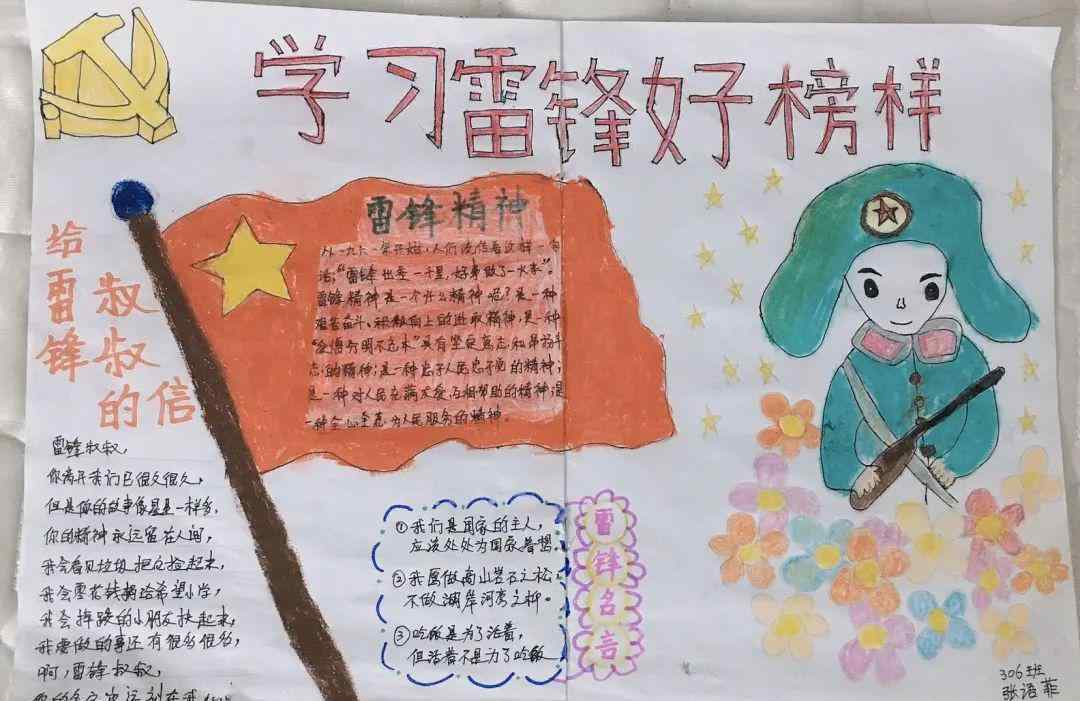 学习雷锋好榜样
雷锋精神
从一九六一年开始，人们流传着这样一句
话："雷锋出差一千里，好事做了一火车"。
雷锋精神是一个什么精神呢？是一种
艰苦奋斗、积极向上的进取精神，是一种
具有坚定意志和
的精神；是一种忠于人民忠于的精神；
是一种对人民充满友爱，互相帮助的精神；是
一种全心全意为人民服务的精神。
给
雷锋
叔叔
的信
雷锋叔叔，
你离开我们已很久很久，
但是你的故事像星星一样多，
你的精神永远留在人间，
我会看见垃圾把它捡起来，
我会零花钱捐给希望小学，
我会摔跤的小朋友扶起来，
我要做的事还有很多很多，
啊，雷锋叔叔，
雷锋名言
①我们是国家的主人，
应该处处为国家着想。
②我愿做高山岩石之松，
不做湖岸河旁之柳。
③吃饭是为了活着，
但活着不是为了吃饭
306班
张语菲